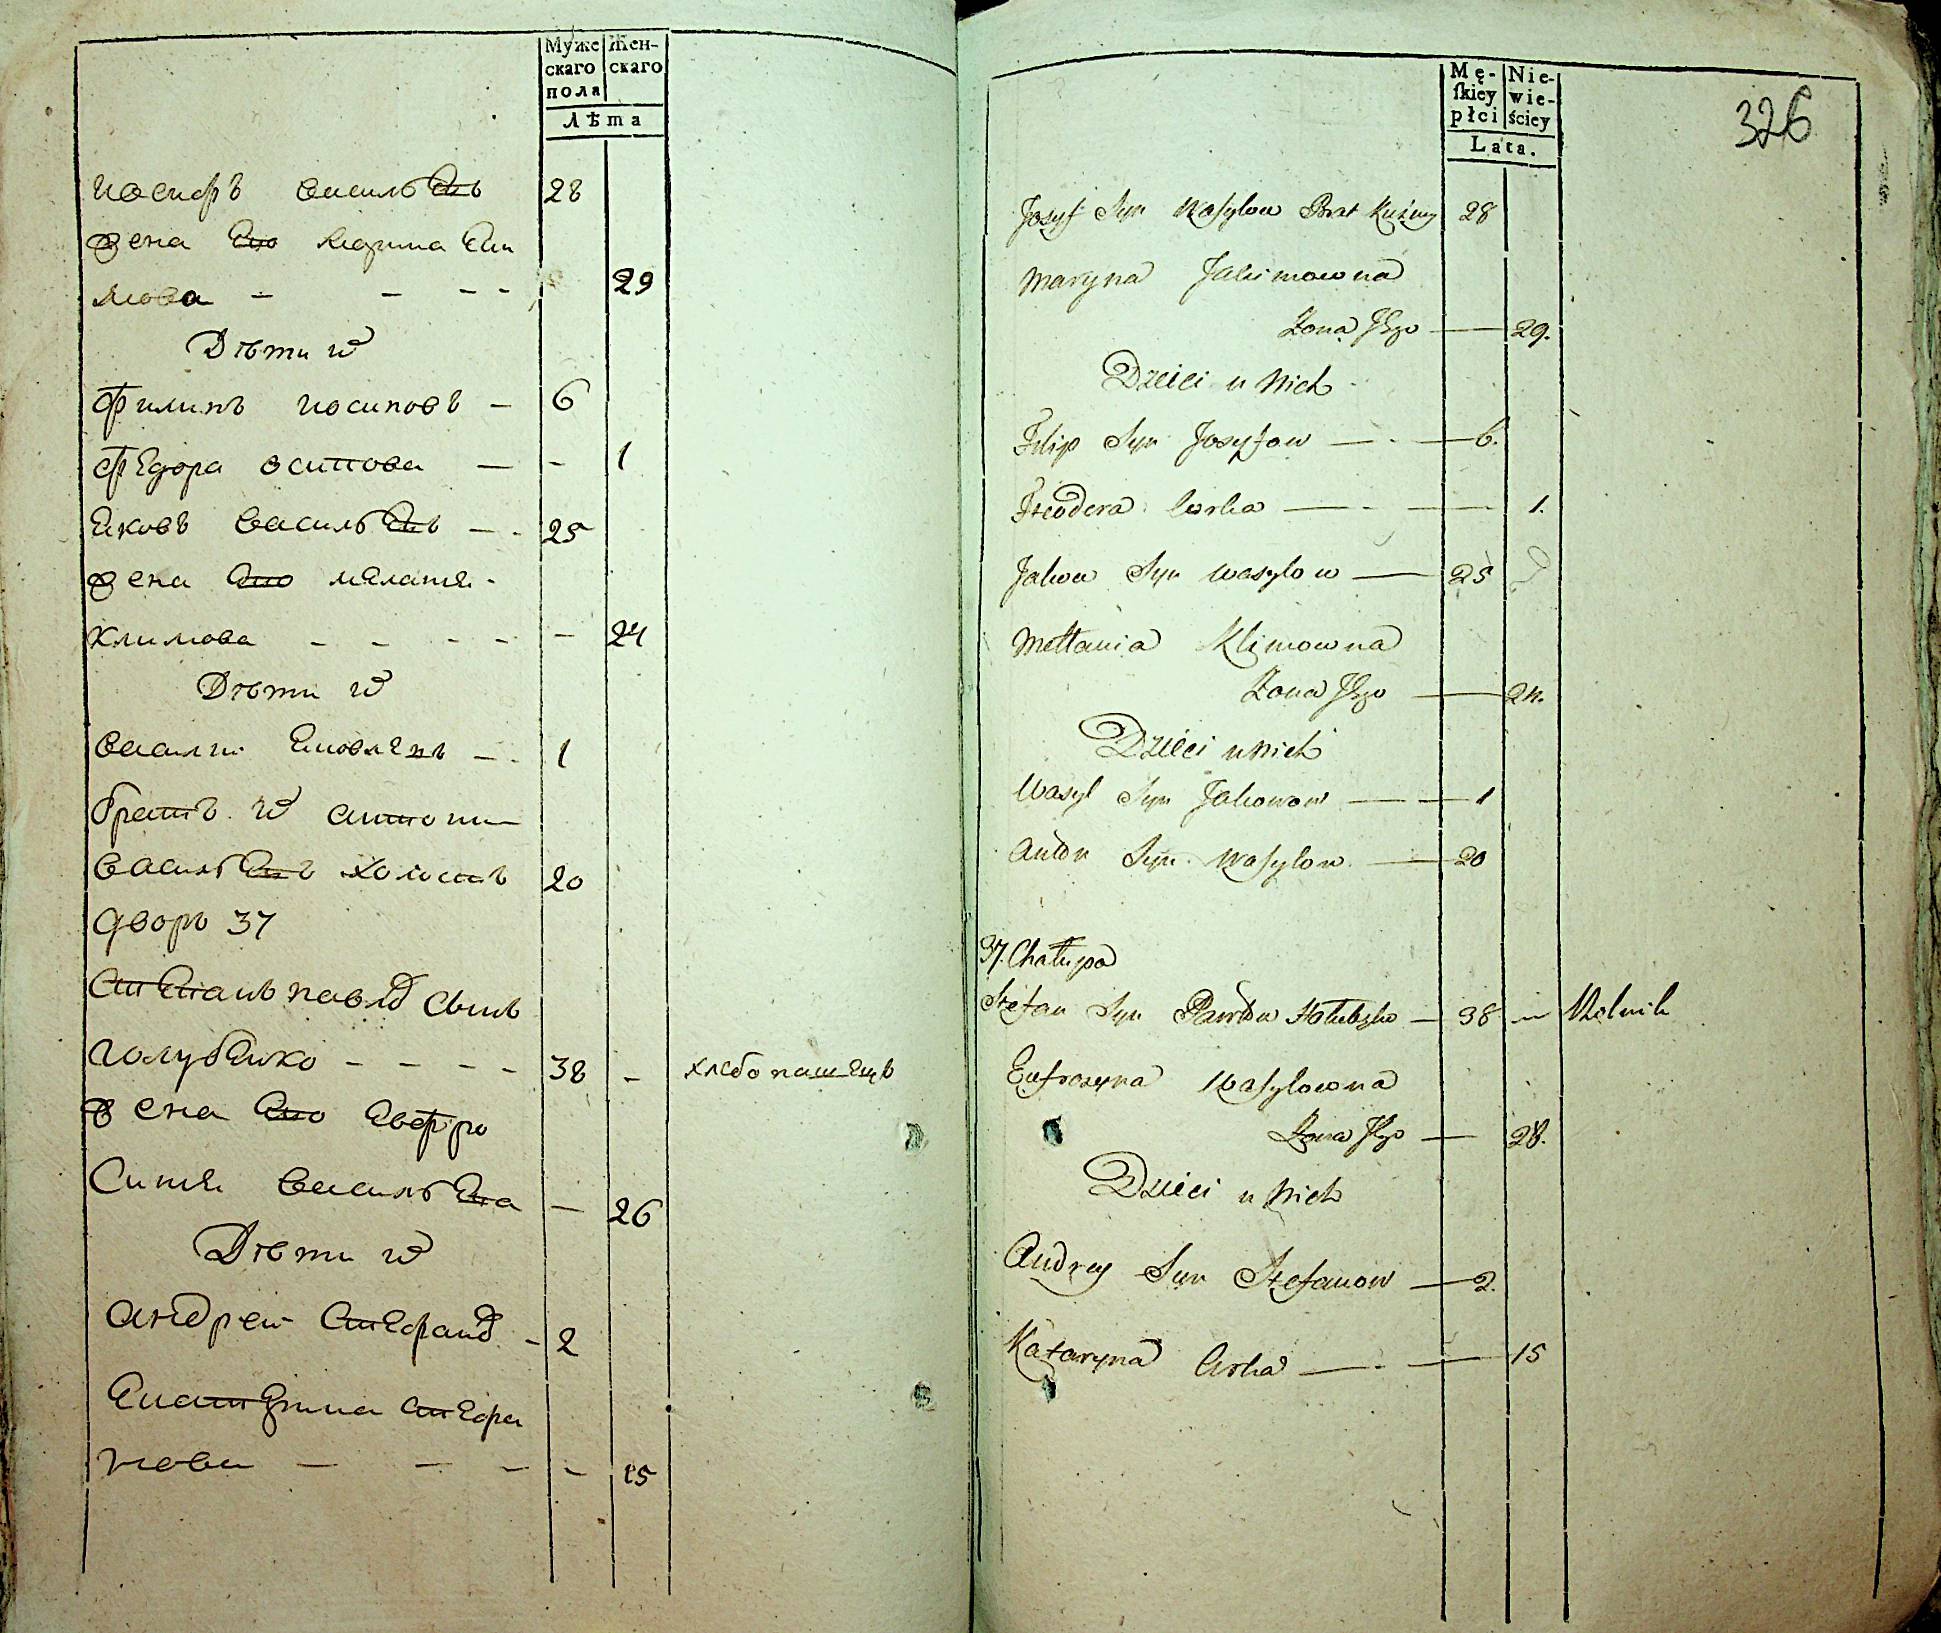 Муже
скаго
пола
Жен-
скаго
Лѣта
иосифъ васильевъ 28
жена ево марина
мова - - - - 29
Дѣти их
Филипъ иосиповъ — 6
Федора осипова — - 1
Ековъ васильевъ — - 25
жена ево меланя -
климова - - - - — 24
Дѣти их
василии — - 1
братъ их антонъ
васильевъ холостъ 20
дворъ 37
Степанъ павлов сынъ
голубенко - - - - 38 - хлебопашецъ
жена ево Евфро
синя васильева — 26
Дѣти их
андреи Стефанов - 2
Екатерина стефа
нова — - - - 15
Mę-
ſkiey
płci
Nie-
wie-
ściey
Lata.
326
Jozyf Syn Wasylow Brat Kuźmy 28
Maryna Jakimowna
Żona Jego — 29.
Dzieci u Nich
Filip Syn Jozyfow — - — 6.
Fteodora Corka — - — 1.
Jakow Syn Wasylow — 25
Mełłania Klimowna
Żona Jego — 24.
Dzieci u Nich
Wasyl Syn Jakowow — — 1
Anton Syn Wasylow — 20
37. Chałupa
Stefan Syn Pawłow Hołubeńko — 38 — Rolnik
Eufrozyna Wasylowna
Żona Jego — 28.
Dzieci u Nich
Andrey Syn Stefanow — 2.
Kataryna Corka — - — 15